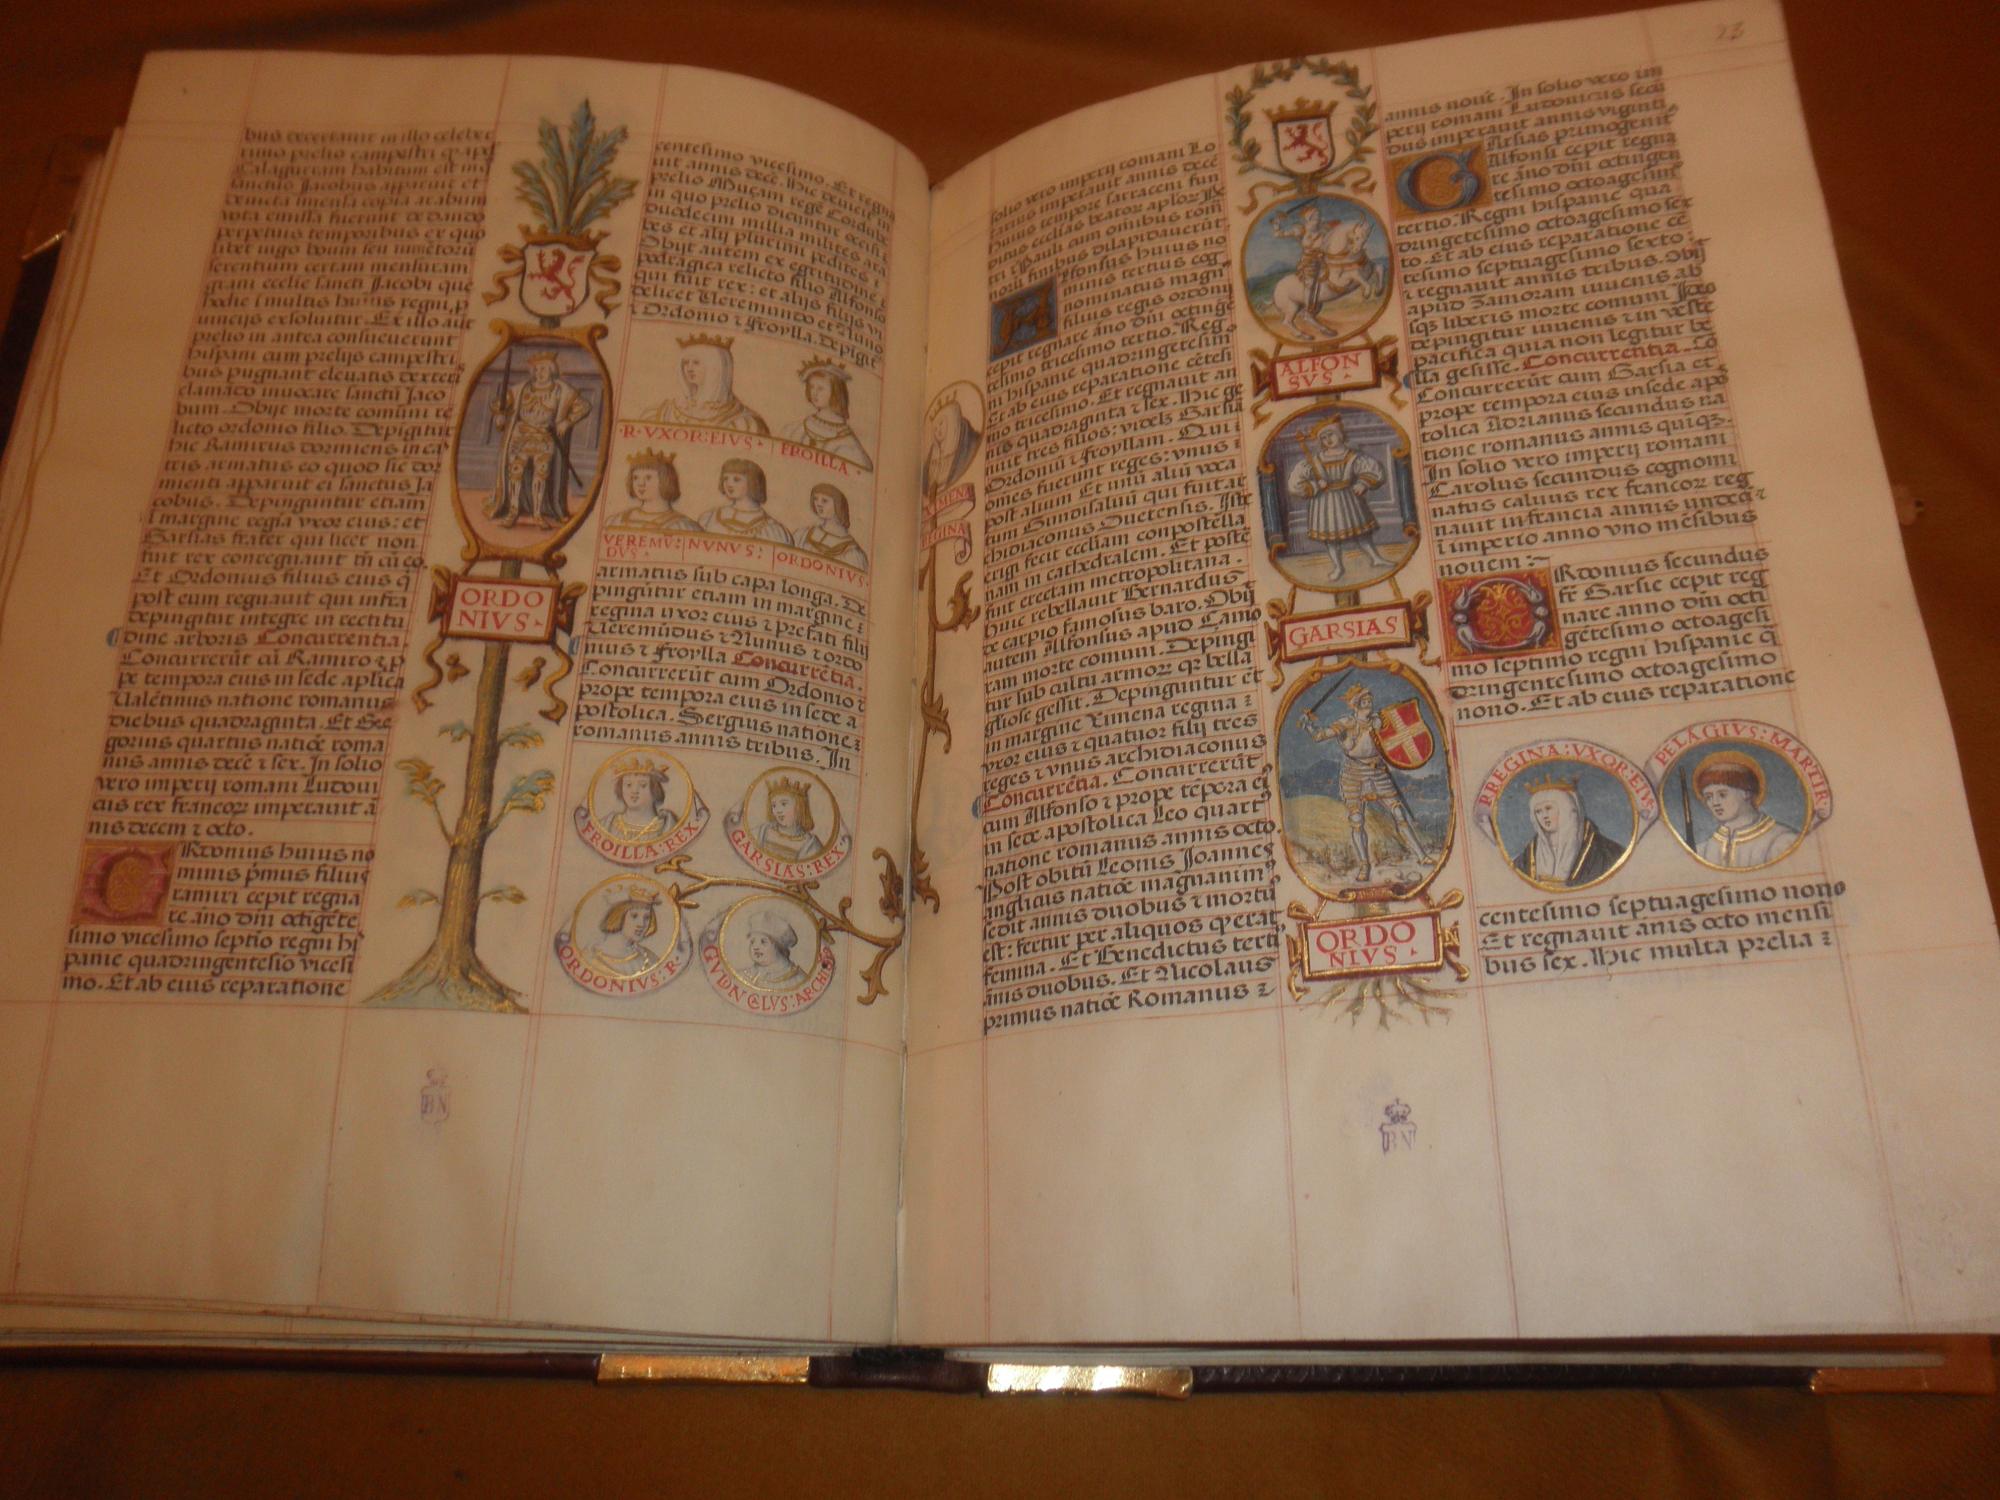 bus decertauit in illo celeber
rimo prelio campestri qđ apđ
Calagurram habitum est in q̃
sanctus Jacobus apparuit et
deuicta imensa copia arabum
vota emissa fuerunt de dando
perpetuis temporibus ex quo
libet iugo boum seu iumētorū
serentium certam mensuram
grani ecclie sancti Jacobi que
hodie ī multis huius regni, p
uincijs exsoluitur. Ex illo aūt
prelio in antea consueuerunt
hispani cum prelijs campestri
bus pugnant eleuatis dexteris
clamādo inuocare sanctū Jaco
bum. Obijt morte comūni re
licto ordonio filio. Depigitur
hic Ramirus dormiens in ca
tris armatus eo quod sic dor
mienti apparuit ei sanctus Ja
cobus. Depinguntur etiam
ī margine regia vxor eius: et
Garsias frater qui licet non
fuit rex conregnauit tñ cū eo.
Et Ordonius filius eius q̃
post eum regnauit qui infra
depingitur integre in rectitu
dine arboris Concurrentia.
Concurrerūt cū Ramiro ⁊ p
pe tempora eius in sede aplica
Valētinus natione romanus
diebus quadraginta. Et Gre
gorius quartus natiōe roma
nus annis decē ⁊ sex. In solio
vero imperij romani Ludoui
cus rex francoꝝ imperauit ā
nis decem ⁊ octo.
ORdonius huius no
minis p̄mus filius
ramiri cepit regna
re āno dñi octigēte
simo vicesimo septio regni hi
panie quadringentesio vicesi
mo. Et ab eius reparatione
ORDO
NIVS
centesimo vicesimo. Et regna
uit annis decē. Hic deuicit in
prelio Muçam regē Cordube
in quo prelio dicuntur occisi
duodecim millia milites ara
bes et alij plurimi pedites ⁊
Obijt autem ex egritudine
podragica relicto filio Alfonso
qui fuit rex: et alijs filijs vi
delicet Ueremundo et Nuno
⁊ Ordonio ⁊ Froylla. Depigit
R·VXOR:EIVS
FROILLA
VEREMŪ:
DVS
NVNVS:
ORDONIVS
armatus sub capa longa. De
pingūtur etiam in margine:
regina vxor eius ⁊ prefati filij
Ueremūdus ⁊ Nunus ⁊ ordo
nius ⁊ Froylla Concurrētia.
Concurrerūt cum Ordonio ⁊
prope tempora eius in sede a
postolica. Sergius natione:
romanus annis tribus. In
FROILLA:REX
GARSIAS:REX
ORDONIVS·R·
GVDNCELVS:ARCHI
XIMENA
REGINA
23
solio vero imperij romani Lo
tarius imperauit annis decē
huius tempore sarraceni fun
ditus ecclias beatoꝝ aploꝝ Pe
tri ⁊ Pauli cum omnibus rom
noꝝ finibus dilapidauerūt
Alfonsus huius no
minis tertius cog
nominatus magn⁹
filius regis ordonij
cepit regnare āno dñi octinge
tesimo tricesimo tertio. Reg
ni hispanie quadringetesim
Et ab eius reparatione cētesi
mo tricesimo. Et regnauit an
nis quadraginta ⁊ sex. Hic ge
nuit tres filios: videlz Garsiā
Ordoniū ⁊ Froyllam. Qui ⁊
omēs fuerunt reges: vnus ⁊
post alium Et vnū aliū voca
tum Gundisaluū qui fuit ar
chidiaconus Ouetensis. Iste
erigi fecit eccliam conpostella
nam in cathedralem. Et poste
fuit erectam metropolitana.
Huic rebellauit Bernardus
de carpio famosus baro. Obijt
autem Alfonsus apud Camo
ram morte comuni. Depingi
tur sub cultu armoꝝ qꝛ bella
gliose gessit. Depinguntur et
in margine Ximena regina ⁊
vxor eius ⁊ quatuor filij tres
reges ⁊ vnus archidiaconus
Concurrētia. Concurrerūt
cum Alfonso ⁊ prope tēpora ei⁹
in sede apostolica Leo quart⁹
natione romanus annis octo.
Post obitū Leonis Joannes
anglicus natiōe magnanim⁹
sedit annis duobus ⁊ mortu⁹
est: fertur per aliquos q̃ erat
femina. Et Benedictus terti⁹
ānis duobus. Et Nicolaus
primus natiōe Romanus ⁊
ALFON
SVS
GARSIAS
ORDO
NIVS
annis nouē. In solio vero im
perij romani Ludouicus secū
dus imperauit annis viginti
GArsias primogenit⁹
Alfonsi cepit regna
re āno dñi octingen
tesimo octoagesimo
tertio. Regni hispanie qua
dringetesimo octoagesimo sex
to. Et ab eius reparatione cē
tesimo septuagesimo sexto.
⁊ regnauit annis tribus. Obijt
apud Zamoram iuuenis ab
sqꝫ liberis morte comuni Ideo
depingitur iuuenis ⁊ in veste
pacifica quia non legitur be
lla gesisse. Concurrentia. Co
Concurrerūt cum Garsia et
prope tempora eius in sede apo
tolica Adrianus secundus na
tione romanus annis quiqꝫ.
In solio vero imperij romani
Carolus secundus cognomi
natus caluus rex francoꝝ reg
nauit in francia annis vndeci⁊
ī imperio anno vno mēsibus
nouem:
ORdonius secundus
fr̄ Garsie cepit reg
nare anno dñi octi
gētesimo octoagesi
mo septimo regni hispanie q̃
dringentesimo octoagesimo
nono. Et ab eius reparatione
REGINA:VXOR:EIVS
PELAGIVS:MARTIR
centesimo septuagesimo nono
Et regnauit ānis octo mensi
bus sex. Hic multa prelia ⁊
BN
BN